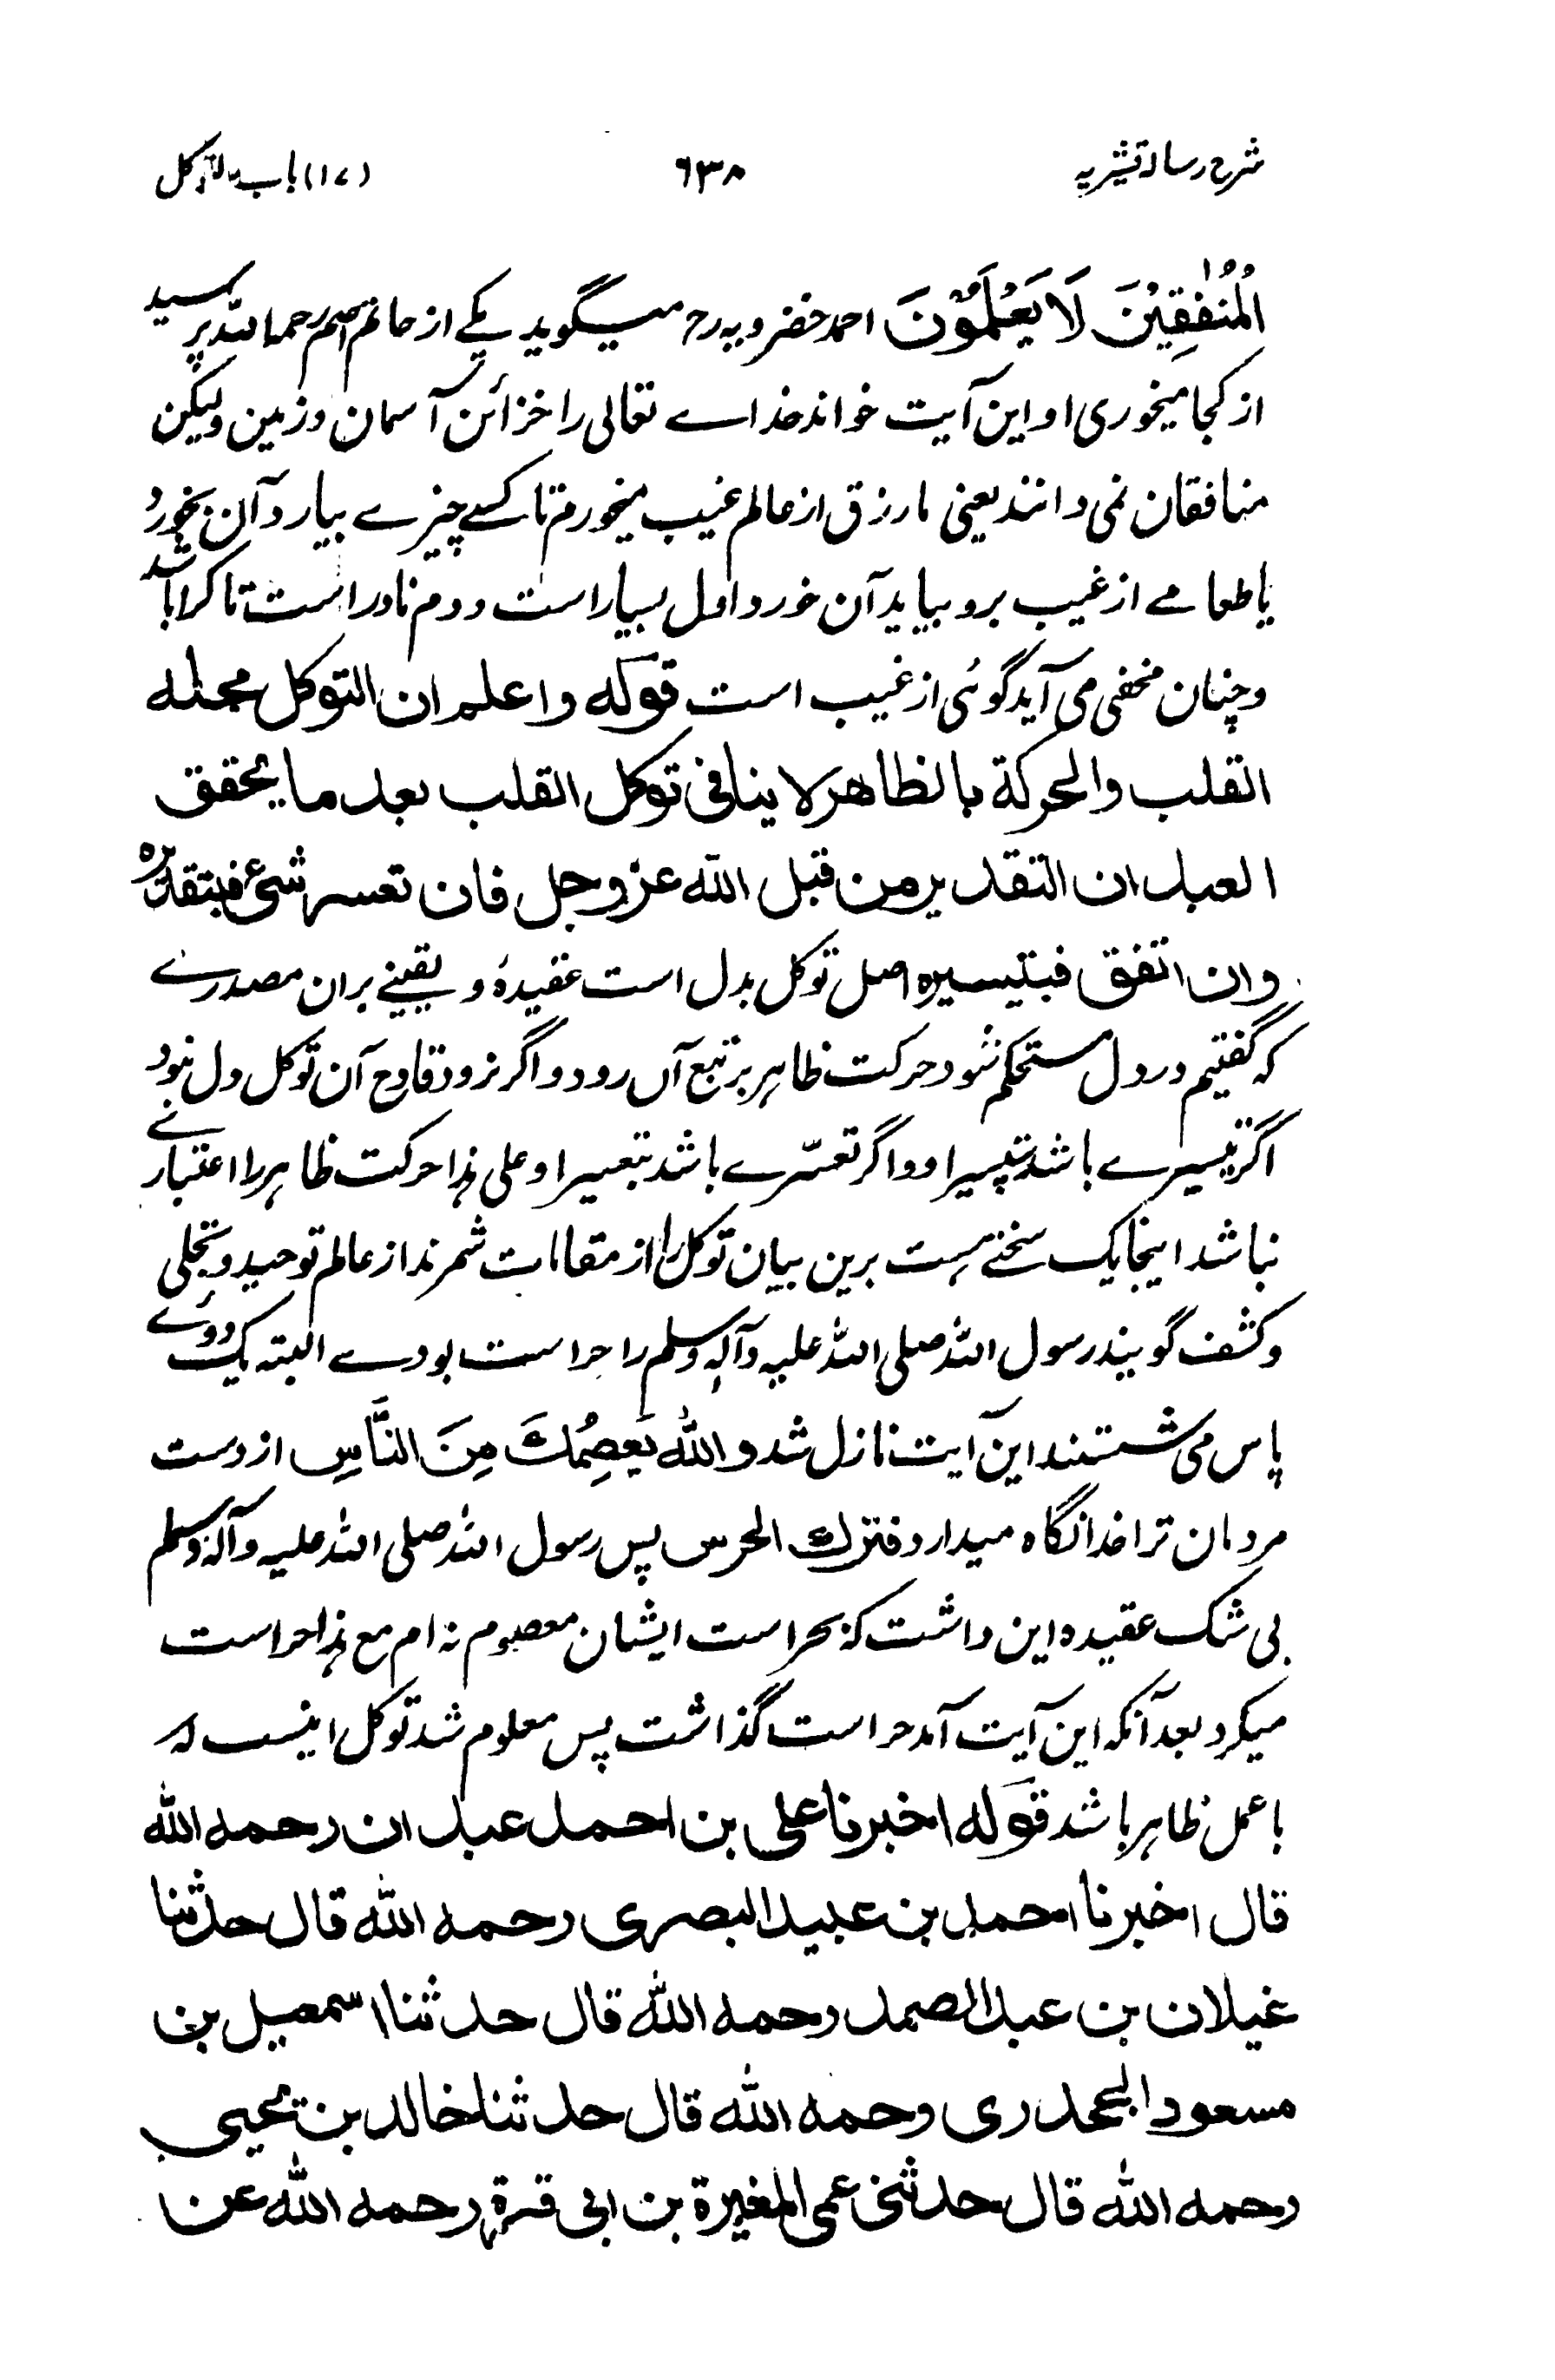 شرح رسالہ قشیریہ ۶۳۸ (۱۷) باب التوکل
الْمُنٰفِقِیْنَ لَا یَعْلَمُوْنَ احمد خضرویہ رح میگوید یکے از حاتم اصم رحمہ اللہ پرسید
از کجا میخوری او این آیت خواند خداے تعالی را خزائن آسمان و زمین ولیکن
منافقان نمی دانند یعنی ما رزق از عالم غیب میخورم تا کسے چیزے بیارد آن بخورد
یا طعامے از غیب برو بیاید آن خورد اول بسیار است و دوم نادر است تا کرا باشد
و چنان مخفی می آید گوئی از غیب است قوله واعلم ان التوکل محله
القلب والحرکة بالظاهر لا ینافی توکل القلب بعد ما یحقق
العبد ان التقدیر من قبل الله عز وجل فان تعسر شیٔ فبتقدیره
وان اتفق فبتیسیره اصل توکل بدل است عقیدۂ و یقینے بران مصدرے
که گفتیم در دل مستحکم شود حرکت ظاہر بر تبع آں رود و اگر نرود قادح آن توکل دل نبود
اگر تیسیرے باشد بتیسیر او و اگر تعسّرے باشد بتعسیر او علی ہذا حرکت ظاہر را اعتبارے
نباشد اینجا یک سخنے ہست برین بیان توکل را از مقامات شمرند از عالم توحید و تجلی
و کشف گویند رسول اللہ صلی اللہ علیہ وآلہٖ وسلم را حراست بودے البتہ یک دوئے
پاس می شستند این آیت نازل شد وَاللّٰهُ یَعْصِمُكَ مِنَ النَّاسِ از دست
مردمان ترا خدا نگاه میدارد فترك الحرس پس رسول اللہ صلی اللہ علیہ وآلہ وسلم
بی شک عقیده این داشت که بحراست ایشان معصوم نہ ام مع ہذا حراست
میکرد بعد آنکہ این آیت آمد حراست گذاشت پس معلوم شد توکل اینست که
با عمل ظاہر باشد قوله اخبرنا علی بن احمد عبدان رحمه الله
قال اخبرنا احمد بن عبید البصری رحمه الله قال حدثنا
غیلان بن عبد الصمد رحمه الله قال حدثنا اسمعیل بن
مسعود الجحدری رحمه الله قال حدثنا خالد بن یحیی
رحمه الله قال حدثنی عمی المغیرة بن ابی قرة رحمه الله عن